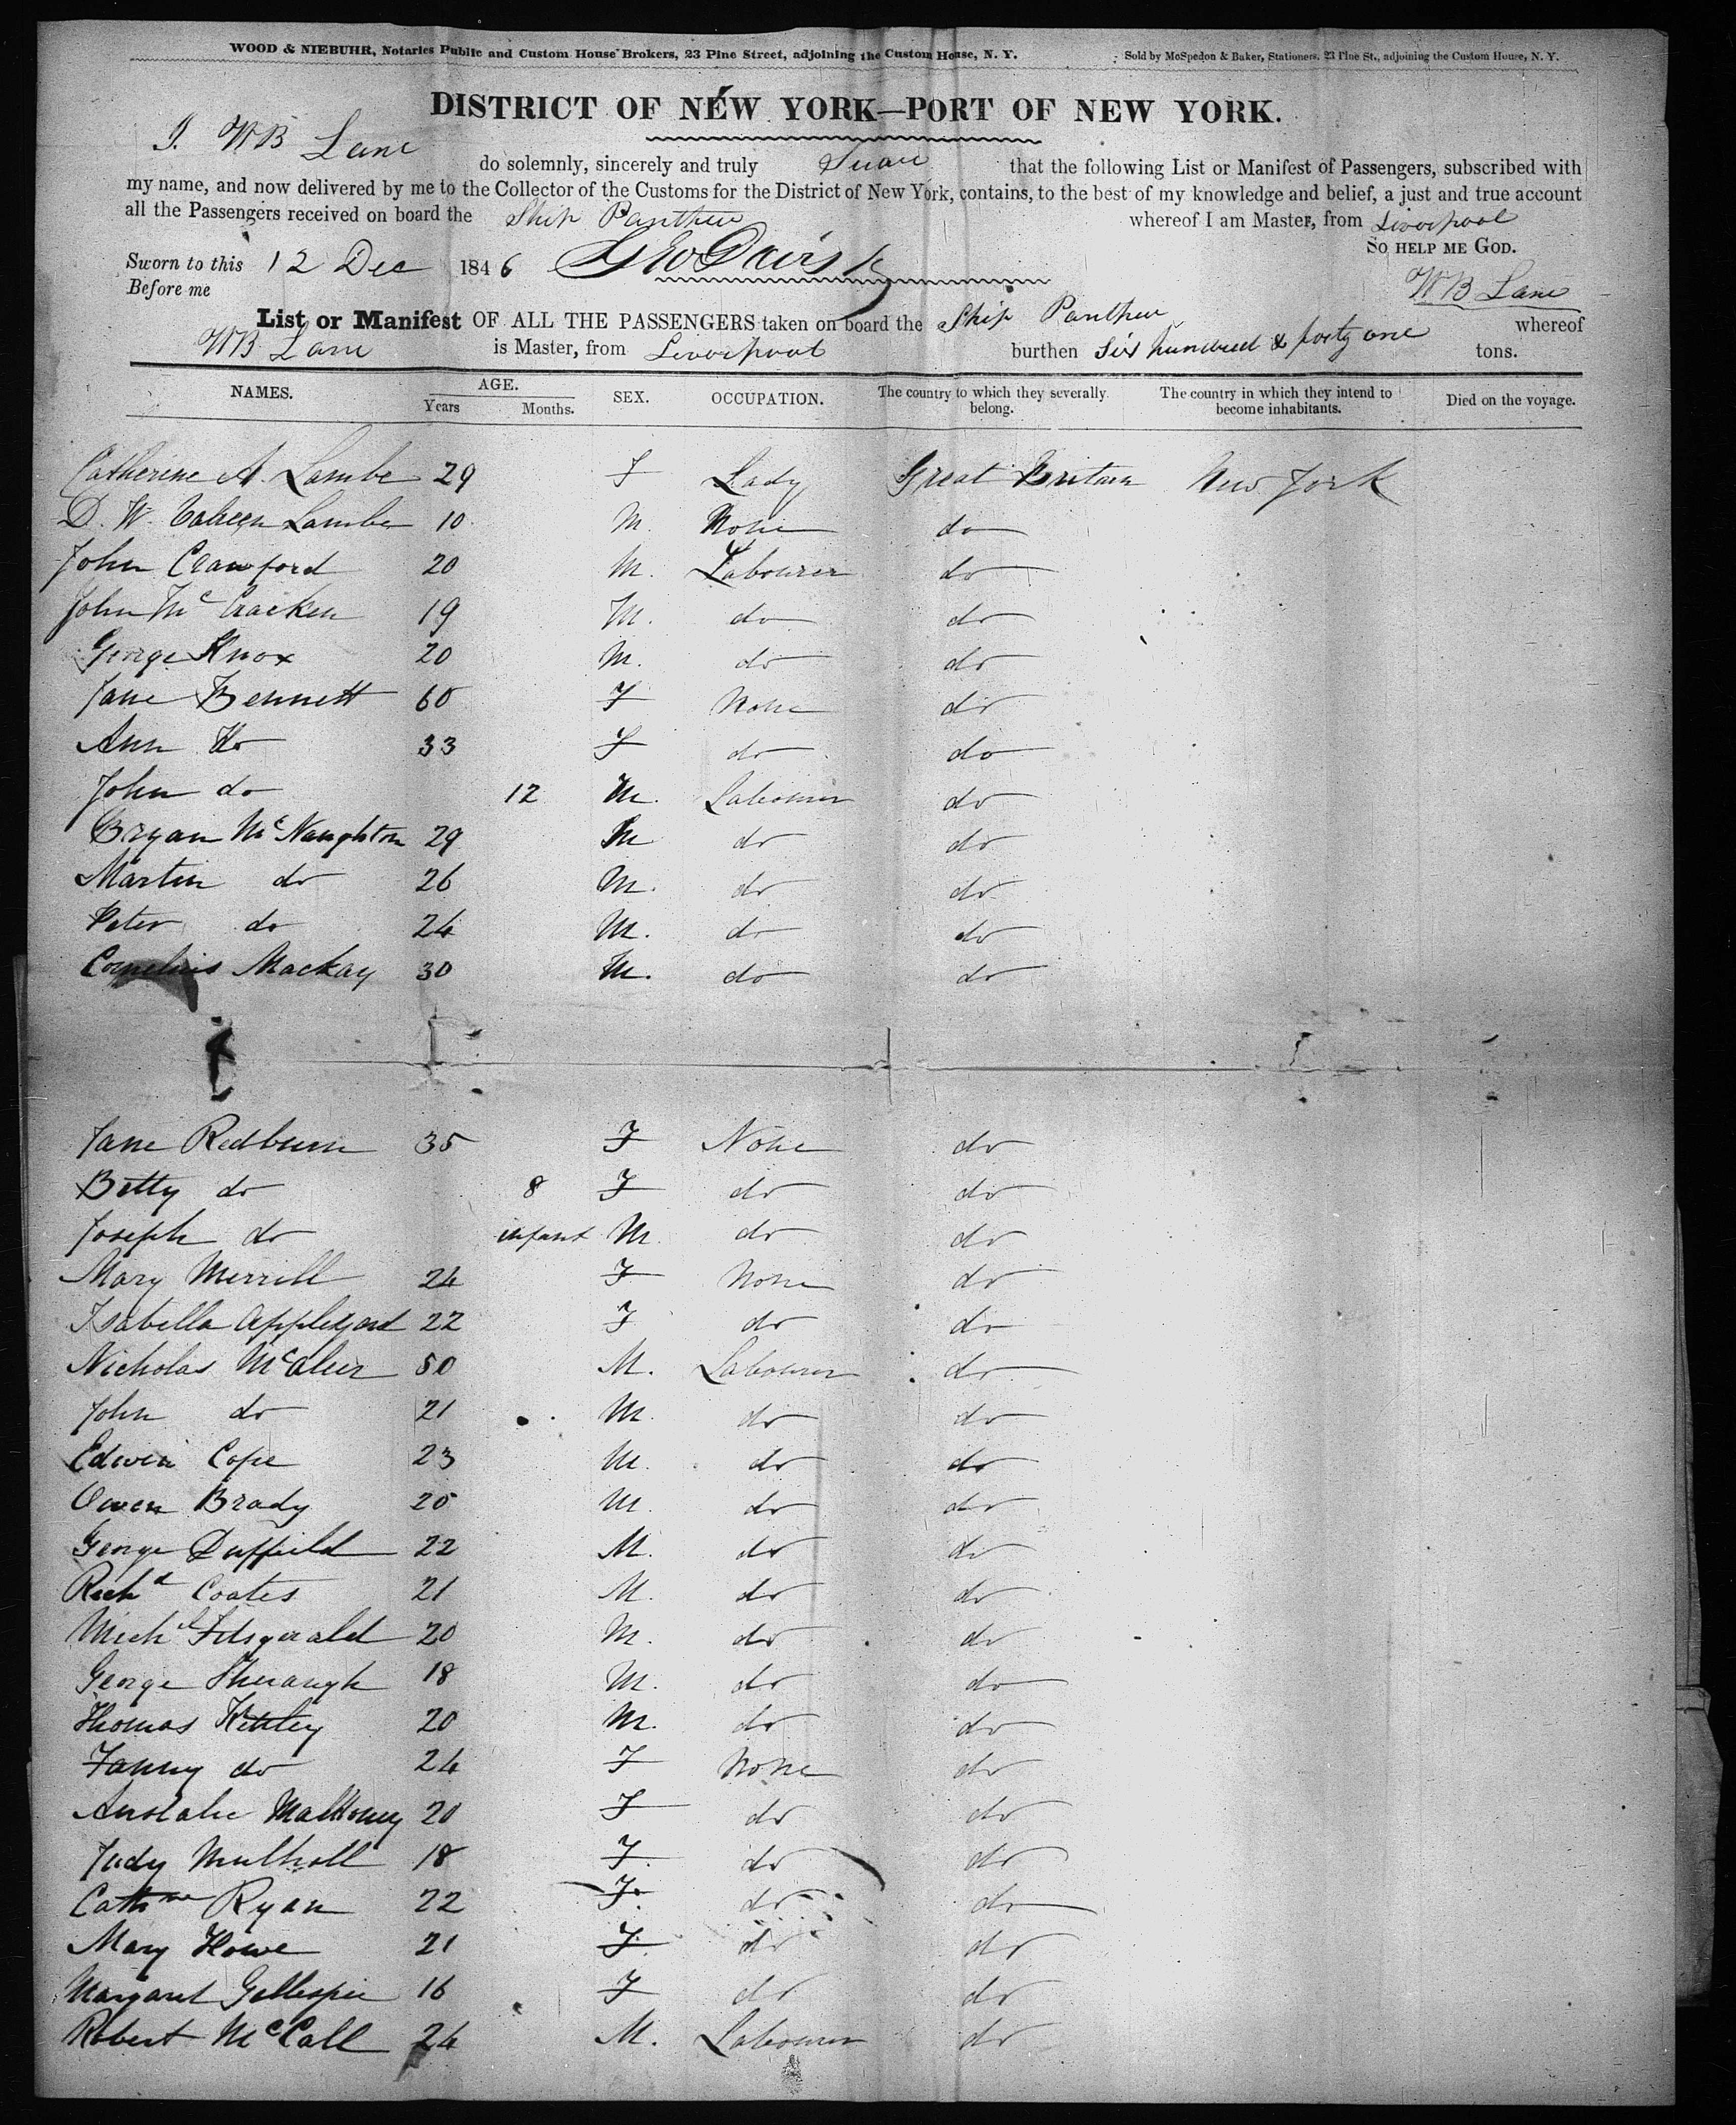 WOOD & NIEBUHR, Notaries Public and Custom House Brokers, 23 Pine Street, adjoining the Custom House, N. Y. Sold by McSpedon & Baker, Stationers, 23 Pine St., adjoining the Custom House, N. Y.
DISTRICT OF NEW YORK—PORT OF NEW YORK.
I. WB Lane do solemnly, sincerely and truly Swear that the following List or Manifest of Passengers, subscribed with
my name, and now delivered by me to the Collector of the Customs for the District of New York, contains, to the best of my knowledge and belief, a just and true account
all the Passengers received on board the Ship Panthea whereof I am Master, from Liverpool
SO HELP ME GOD.
Sworn to this 12 Dec 1846 Geo Davis
Before me WB Lane
List or Manifest OF ALL THE PASSENGERS taken on board the Ship Panthea whereof
WB Lane is Master, from Liverpool burthen Six hundred & forty one tons.
NAMES. AGE. SEX. OCCUPATION. The country to which they severally belong. The country in which they intend to become inhabitants. Died on the voyage.
Years Months.
Catherine A. Lambe 29 F Lady Great Britain New York
D. W. Lambe 10 M. None do
John Crawford 20 M. Labourer do
John McCracken 19 M. do do
George Knox 20 M. do do
Jane Bennett 60 F None do
Ann do 33 F do do
John do 12 M. Labourer do
Bryan McNaughton 29 M do do
Martin do 26 M. do do
Peter do 24 M. do do
Cornelius Mackay 30 M. do do
Jane Redburn 35 F None do
Betty do 8 F do do
Joseph do infant M. do do
Mary Merrill 24 F None do
Isabella Appleyard 22 F do do
Nicholas McAleer 50 M. Labourer do
John do 21 M. do do
Edwin Cope 23 M. do do
Owen Brady 25 M. do do
George Duffield 22 M. do do
Richd Coates 21 M. do do
Michl Fitsgerald 20 M. do do
George 18 M. do do
Thomas 20 M. do do
Fanny do 24 F None do
20 F do do
Judy Mulholl 18 F. do do
Cathne Ryan 22 F. do do
Mary Howe 21 F. do do
Margaret Gillespie 16 F do do
Robert McCall 24 M. Labourer do